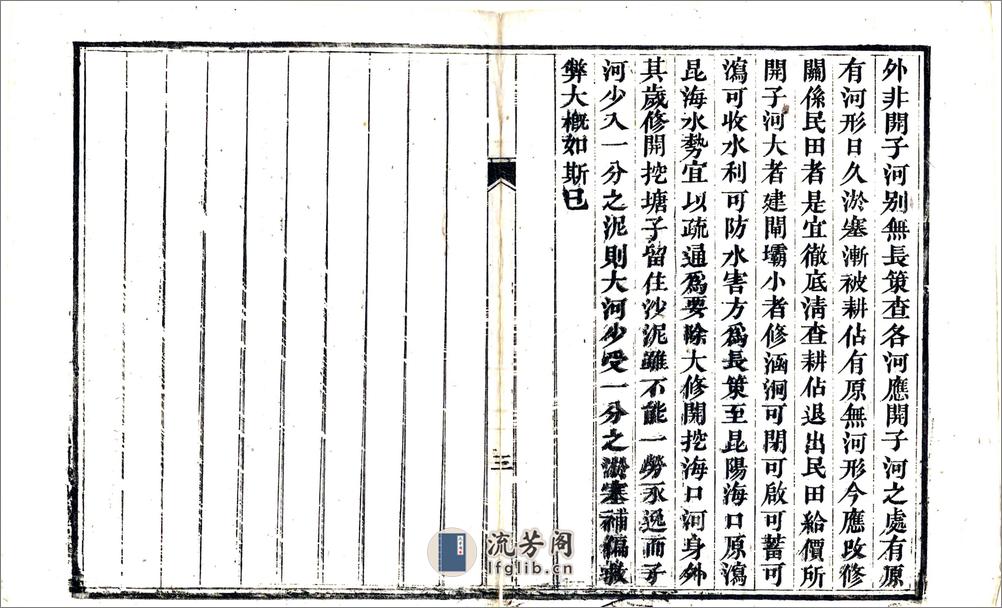 外非開子河別無長策查各河應開子河之處有原
有河形日久淤塞漸被耕佔有原無河形今應改修
關係民田者是宜徹底清查耕佔退出民田給價所
開子河大者建閘壩小者修涵洞可閉可啟可蓄可
瀉可收水利可防水害方爲長策至昆陽海口原瀉
昆海水勢宜以疏通爲要除大修開挖海口河身外
其歲修開挖塘子留住沙泥雖不能一勞永逸而子
河少入一分之泥則大河少受一分之淤塞補偏救
弊大概如斯已
三
流芳阁
lfglib.cn